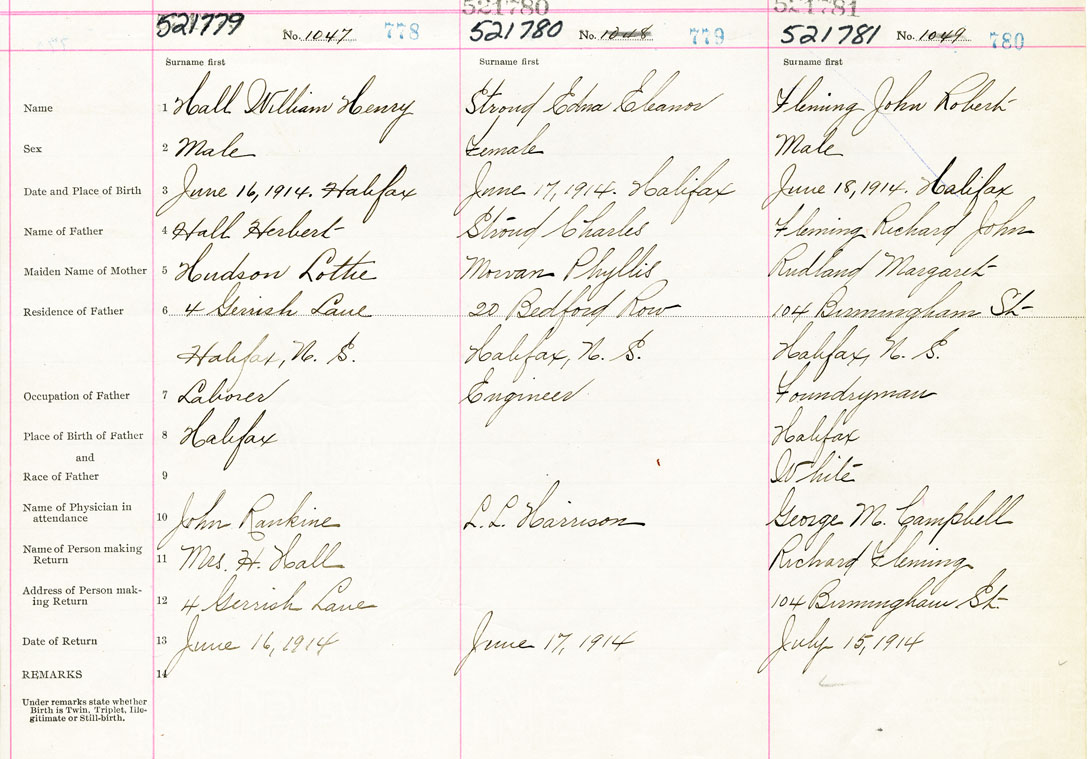 521780 521781
521779 No. 1047 778 521780 No. 1048 779 521781 No. 1049 780
Surname first Surname first Surname first
Name 1 Hall William Henry Stroud Edna Eleanor Fleming John Robert
Sex 2 Male Female Male
Date and Place of Birth 3 June 16, 1914. Halifax June 17, 1914. Halifax June 18, 1914. Halifax
Name of Father 4 Hall Herbert Stroud Charles Fleming Richard John
Maiden Name of Mother 5 Hudson Lottie Phyllis Rudland Margaret
Residence of Father 6 4 Gerrish Lane 20 Bedford Row 104 Birmingham St
Halifax, N. S. Halifax, N. S. Halifax, N. S.
Occupation of Father 7 Laborer Engineer Foundryman
Place of Birth of Father 8 Halifax Halifax
and
Race of Father 9 White
Name of Physician in
attendance 10 John Rankine L. L. Harrison George M. Campbell
Name of Person making
Return 11 Mrs. H. Hall Richard Fleming
Address of Person mak-
ing Return 12 4 Gerrish Lane 104 Birmingham St.
Date of Return 13 June 16, 1914 June 17, 1914 July 15, 1914
REMARKS 14
Under remarks state whether
Birth is Twin, Triplet, Ille-
gitimate or Still-birth.